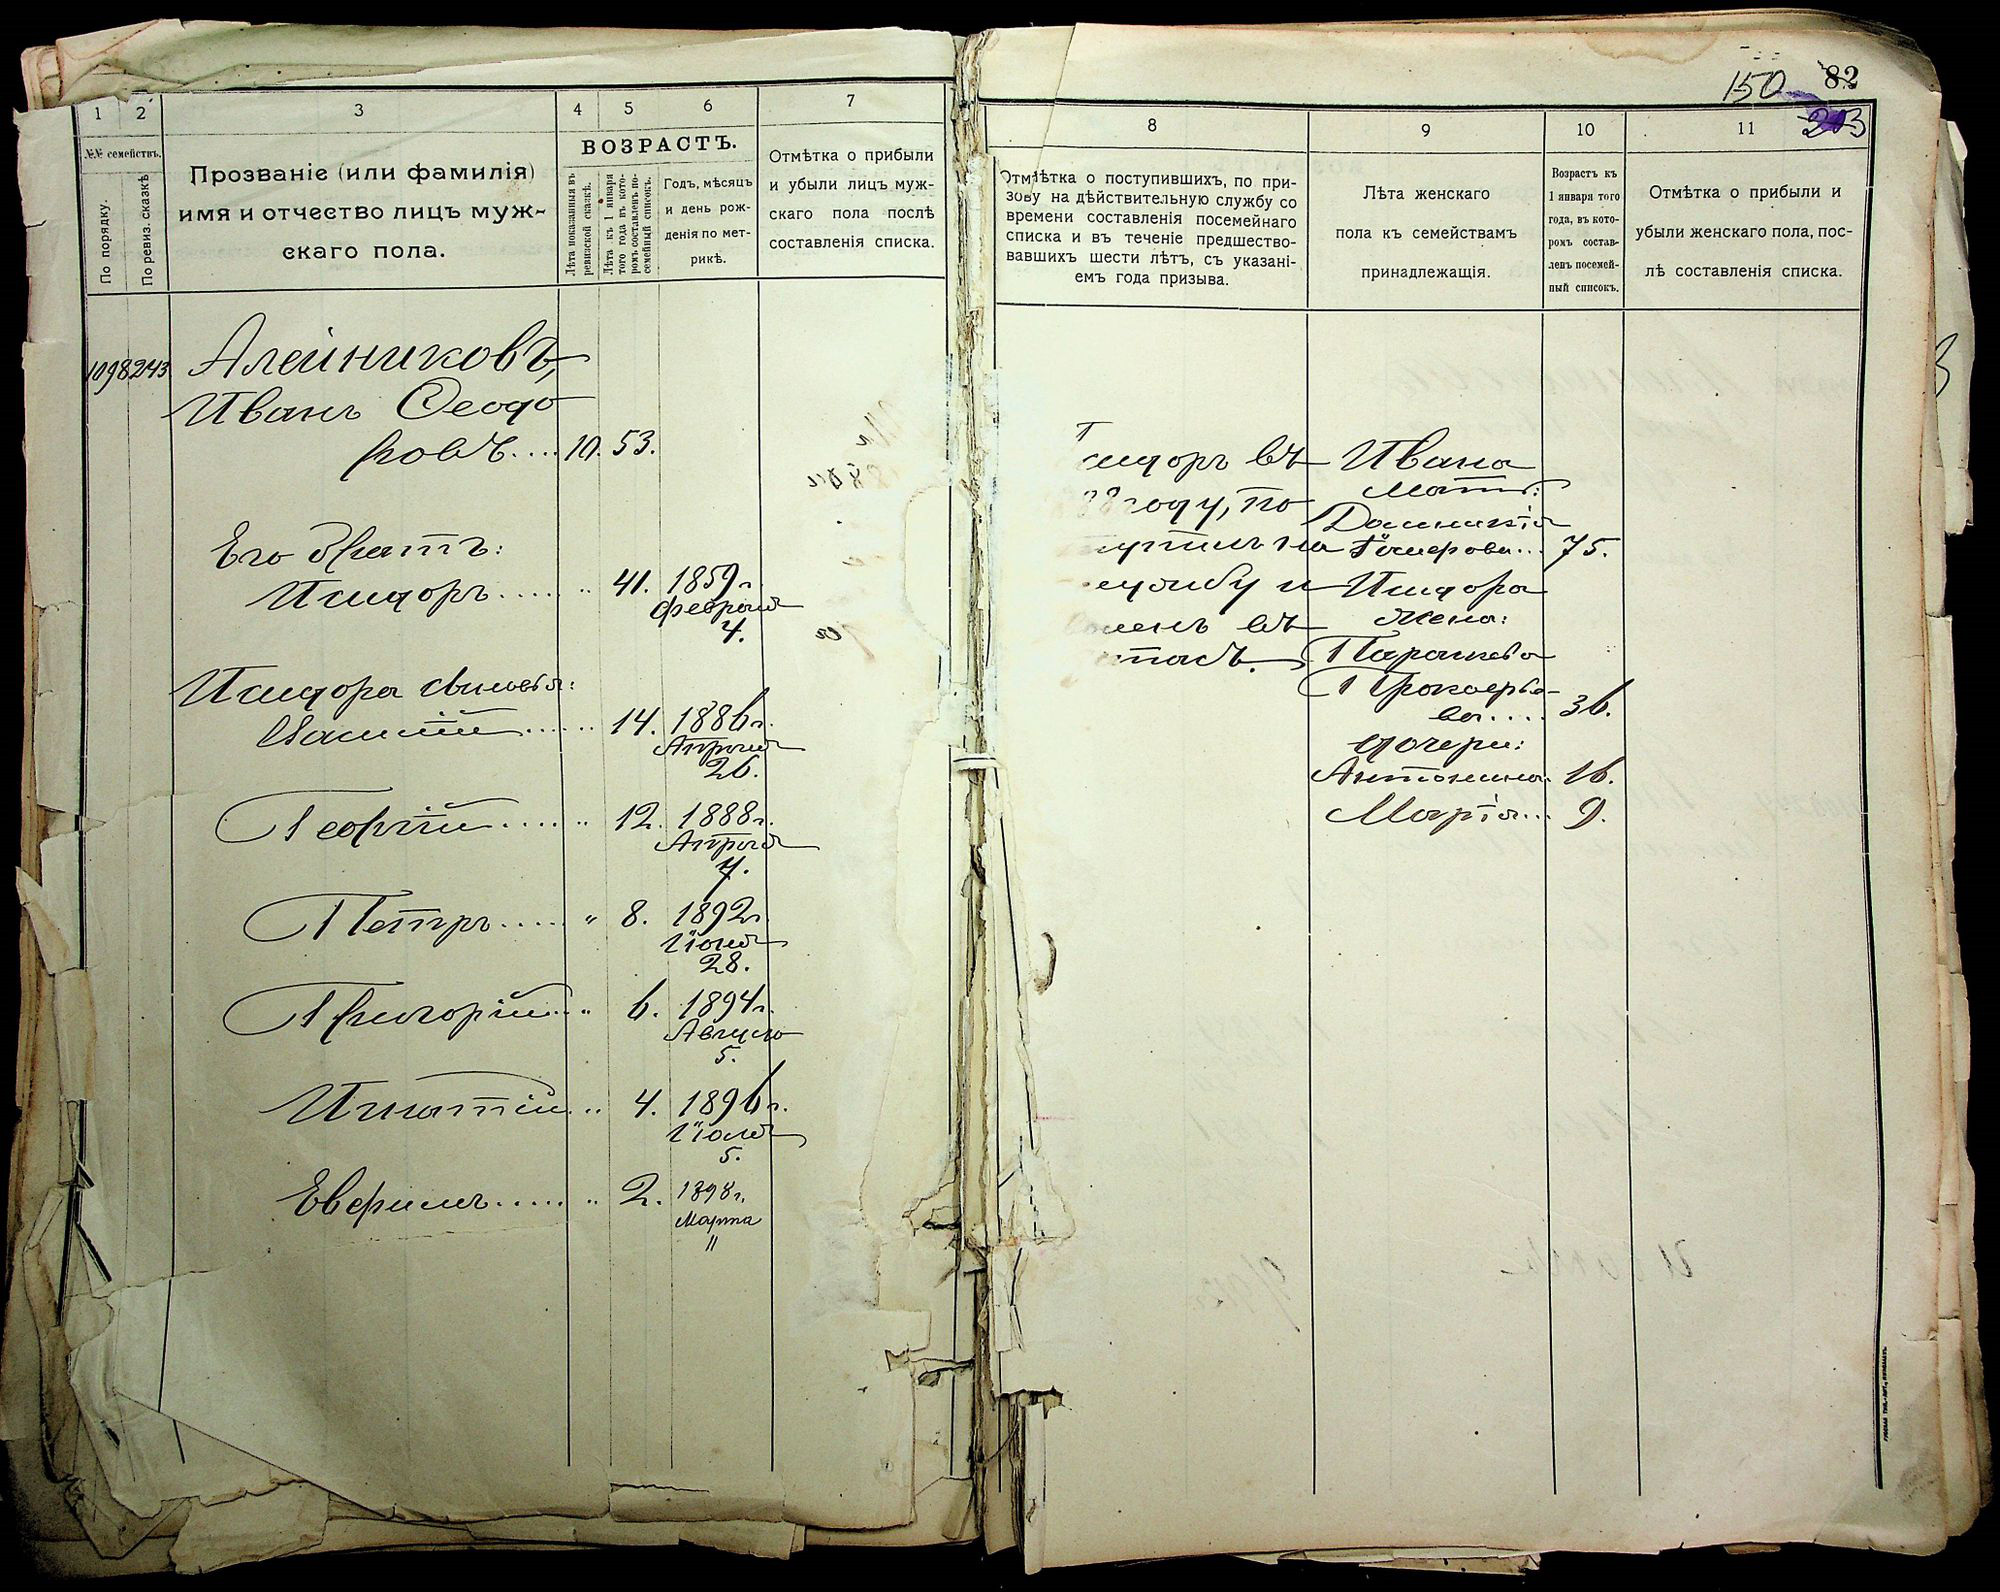 1 2 3 4 5 6 7
№№ семействъ.
По порядку.
По ревиз. сказкѣ
Прозваніе (или фамилія)
имя и отчество лицъ муж-
скаго пола.
ВОЗРАСТЪ.
Лѣта показанныя въ
ревизской сказкѣ.
Лѣта къ 1 января
того года въ кото-
ромъ составленъ по-
семейный списокъ.
Годъ, мѣсяцъ
и день рож-
денія по мет-
рикѣ.
Отмѣтка о прибыли
и убыли лицъ муж-
скаго пола послѣ
составленія списка.
1098 243 Алейниковъ,
Иванъ Ѳеодо
ровъ.... 10. 53.
Его братъ:
Исидоръ...... " 41. 1859 г.
Февраля
4.
Исидора сыновья:
Василій...... " 14. 1886 г.
Апрѣля
26.
Георгій..... " 12. 1888 г.
Апрѣля
7.
Петръ..... " 8. 1892 г.
Іюля
28.
Григорій.. " 6. 1894 г.
Августа
5.
Игнатій.. " 4. 1896 г.
Іюля
5.
Евфимъ..... " 2. 1898 г.
Марта
"
150 82
203
8 9 10 11
Отмѣтка о поступившихъ, по при-
зову на дѣйствительную службу со
времени составленія посемейнаго
списка и въ теченіе предшество-
вавшихъ шести лѣтъ, съ указані-
емъ года призыва.
Лѣта женскаго
пола къ семействамъ
принадлежащія.
Возрастъ къ
1 января того
года, въ кото-
ромъ состав-
ленъ посемей-
ный списокъ.
Отмѣтка о прибыли и
убыли женскаго пола, пос-
лѣ составленія списка.
сидоръ въ Ивана
мать:
году, по
ступилъ на
75.
службу и Исидора
въ жена:
Параскева
Прокофье-
ва.... 36.
дочери:
Антонина. 16.
Марія... 9.